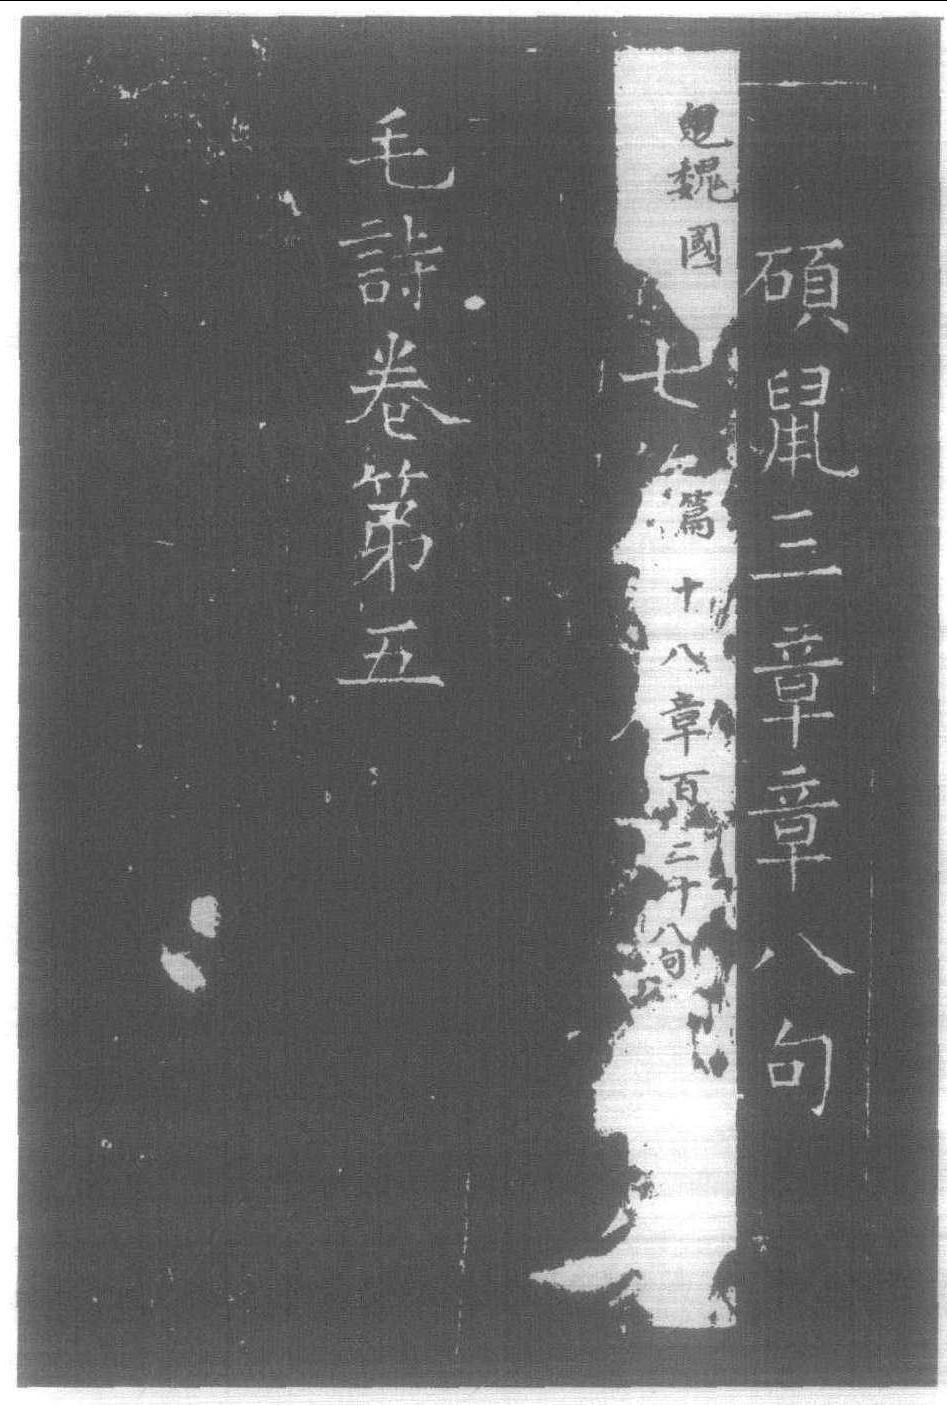 碩鼠三章章八句
魏國七篇十八章百二十八句
毛詩卷第五